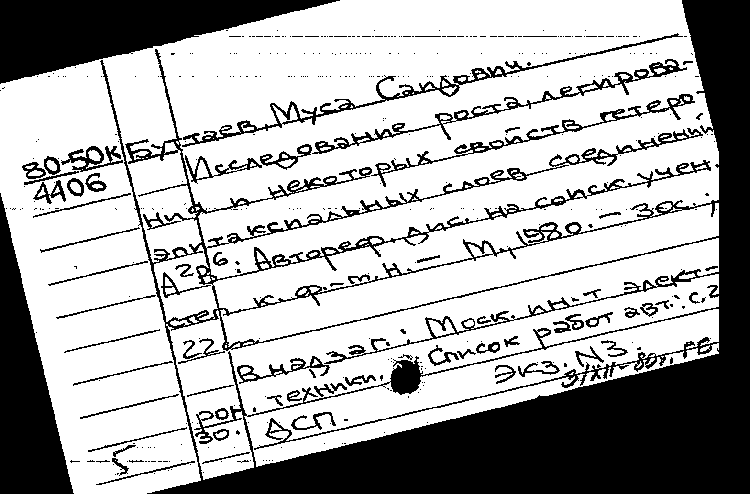 80-50к
4406
Буттаев, Муса Саидович.
Исследование роста, легирова-
ния и некоторых свойств гетеро-
эпитаксиальных слоев соединений
А²В⁶: Автореф. дис. на соиск. учен.
степ. к. ф.-м. н. – М., 1980. – 30с.;
22см
В надзаг.: Моск. ин-т элект-
рон. техники. Список работ авт.: с. 2
30. ДСП. Экз. N3.